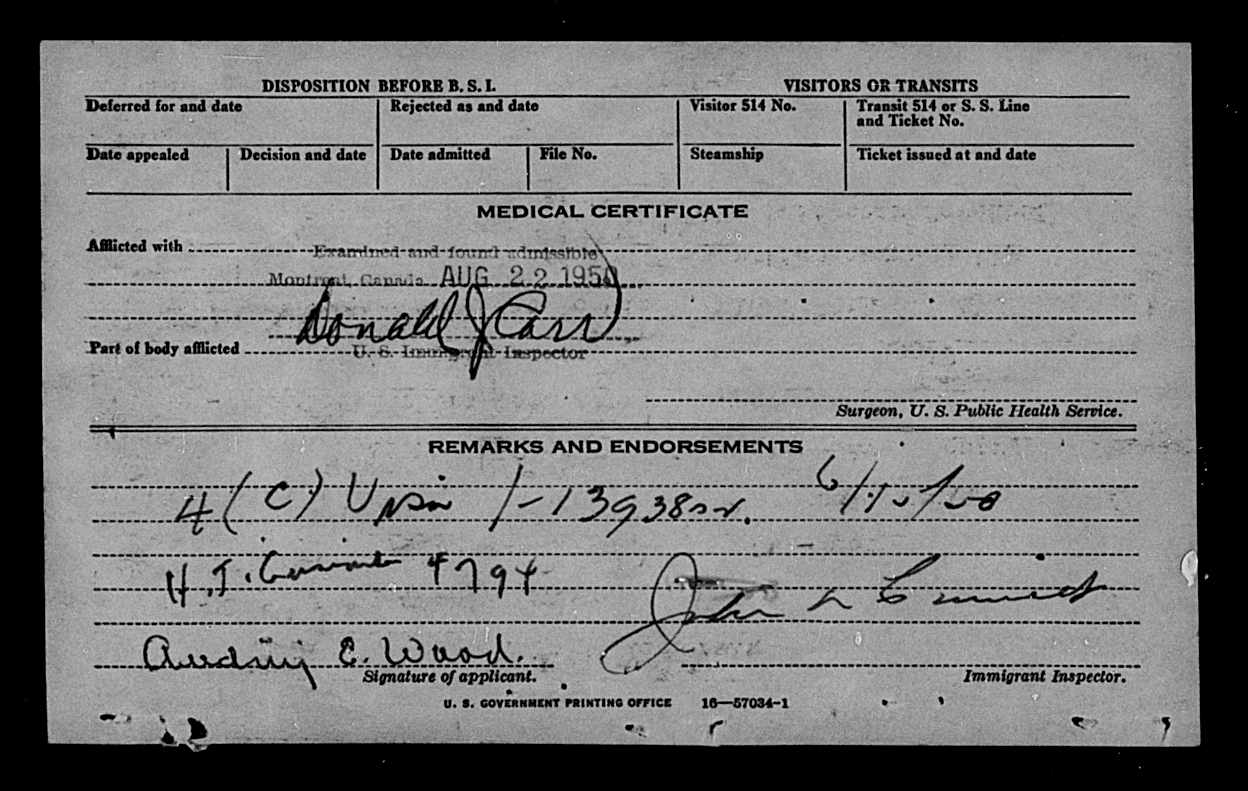 DISPOSITION BEFORE B. S. I. VISITORS OR TRANSITS
Deferred for and date Rejected as and date Visitor 514 No. Transit 514 or S. S. Line and Ticket No.
Date appealed Decision and date Date admitted File No. Steamship Ticket issued at and date
MEDICAL CERTIFICATE
Afflicted with Examined and found admissible
Montreal, Canada AUG 22 1950
Donald J Carr
Part of body afflicted U. S. Immigrant Inspector
Surgeon, U. S. Public Health Service.
REMARKS AND ENDORSEMENTS
4 (C)
H. J. 4794
John
E. Wood.
Signature of applicant. Immigrant Inspector.
U. S. GOVERNMENT PRINTING OFFICE 16—57034-1